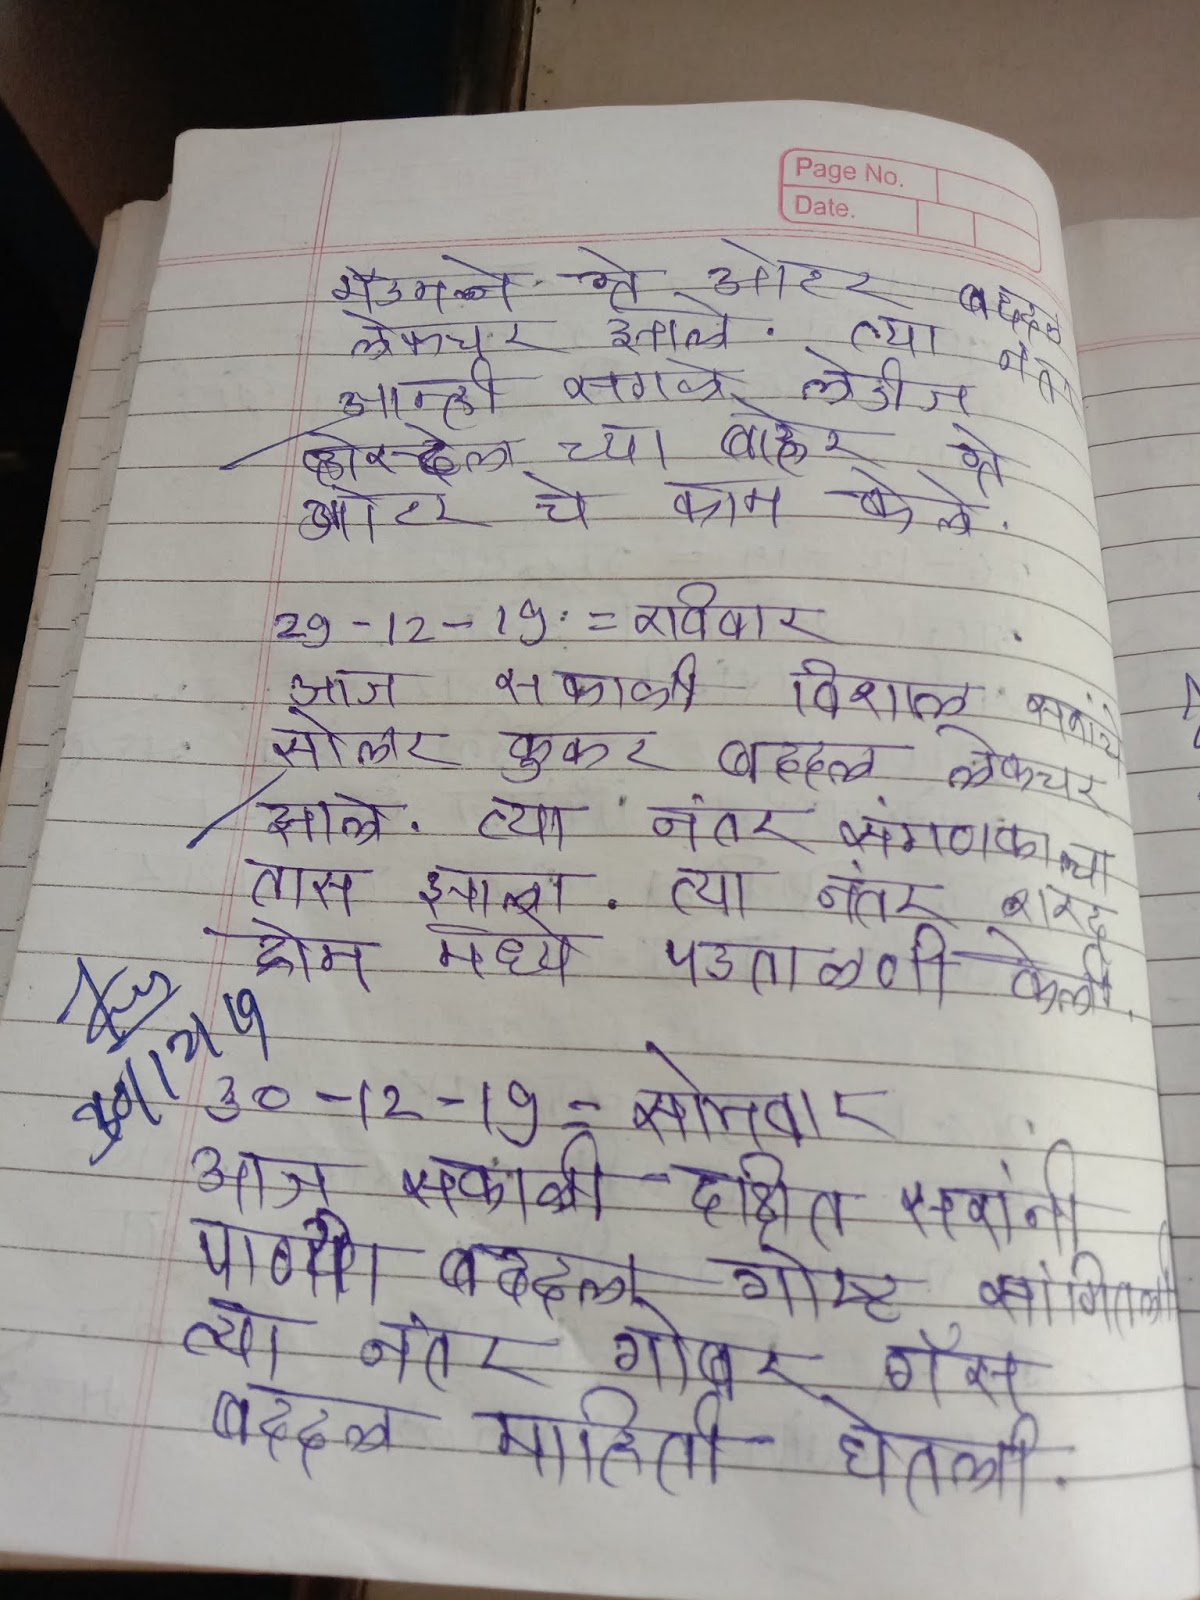 Page No.
Date.
मॅडमने ग्रे ओटर बद्दल
लेक्चर झाले. त्या नंतर
आम्ही सगळे लेडीज
होस्टेल च्या बाहेर ग्रे
ओटर चे काम केले.
29-12-19 = रविवार
आज सकाळी विशाल सरांचे
सोलर कुकर बद्दल लेक्चर
झाले. त्या नंतर संगणकाचा
तास झाला. त्या नंतर शरद
डोम मध्ये पडताळणी केली.
30-12-19 = सोमवार
आज सकाळी दीक्षित सरांनी
बद्दल गोष्ट सांगितली
त्या नंतर गोबर गॅस
बद्दल माहिती घेतली.